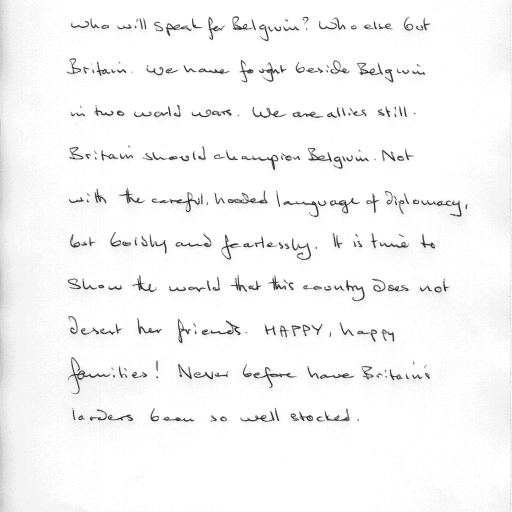 who will speak for Belgium? Who else but
Britain. We have fought beside Belgium
in two world wars. We are allies still.
Britain should champion Belgium. Not
with the careful, hooded language of diplomacy,
but boldly and fearlessly. It is time to
show the world that this country does not
desert her friends. HAPPY, happy
families! Never before have Britain's
larders been so well stocked.